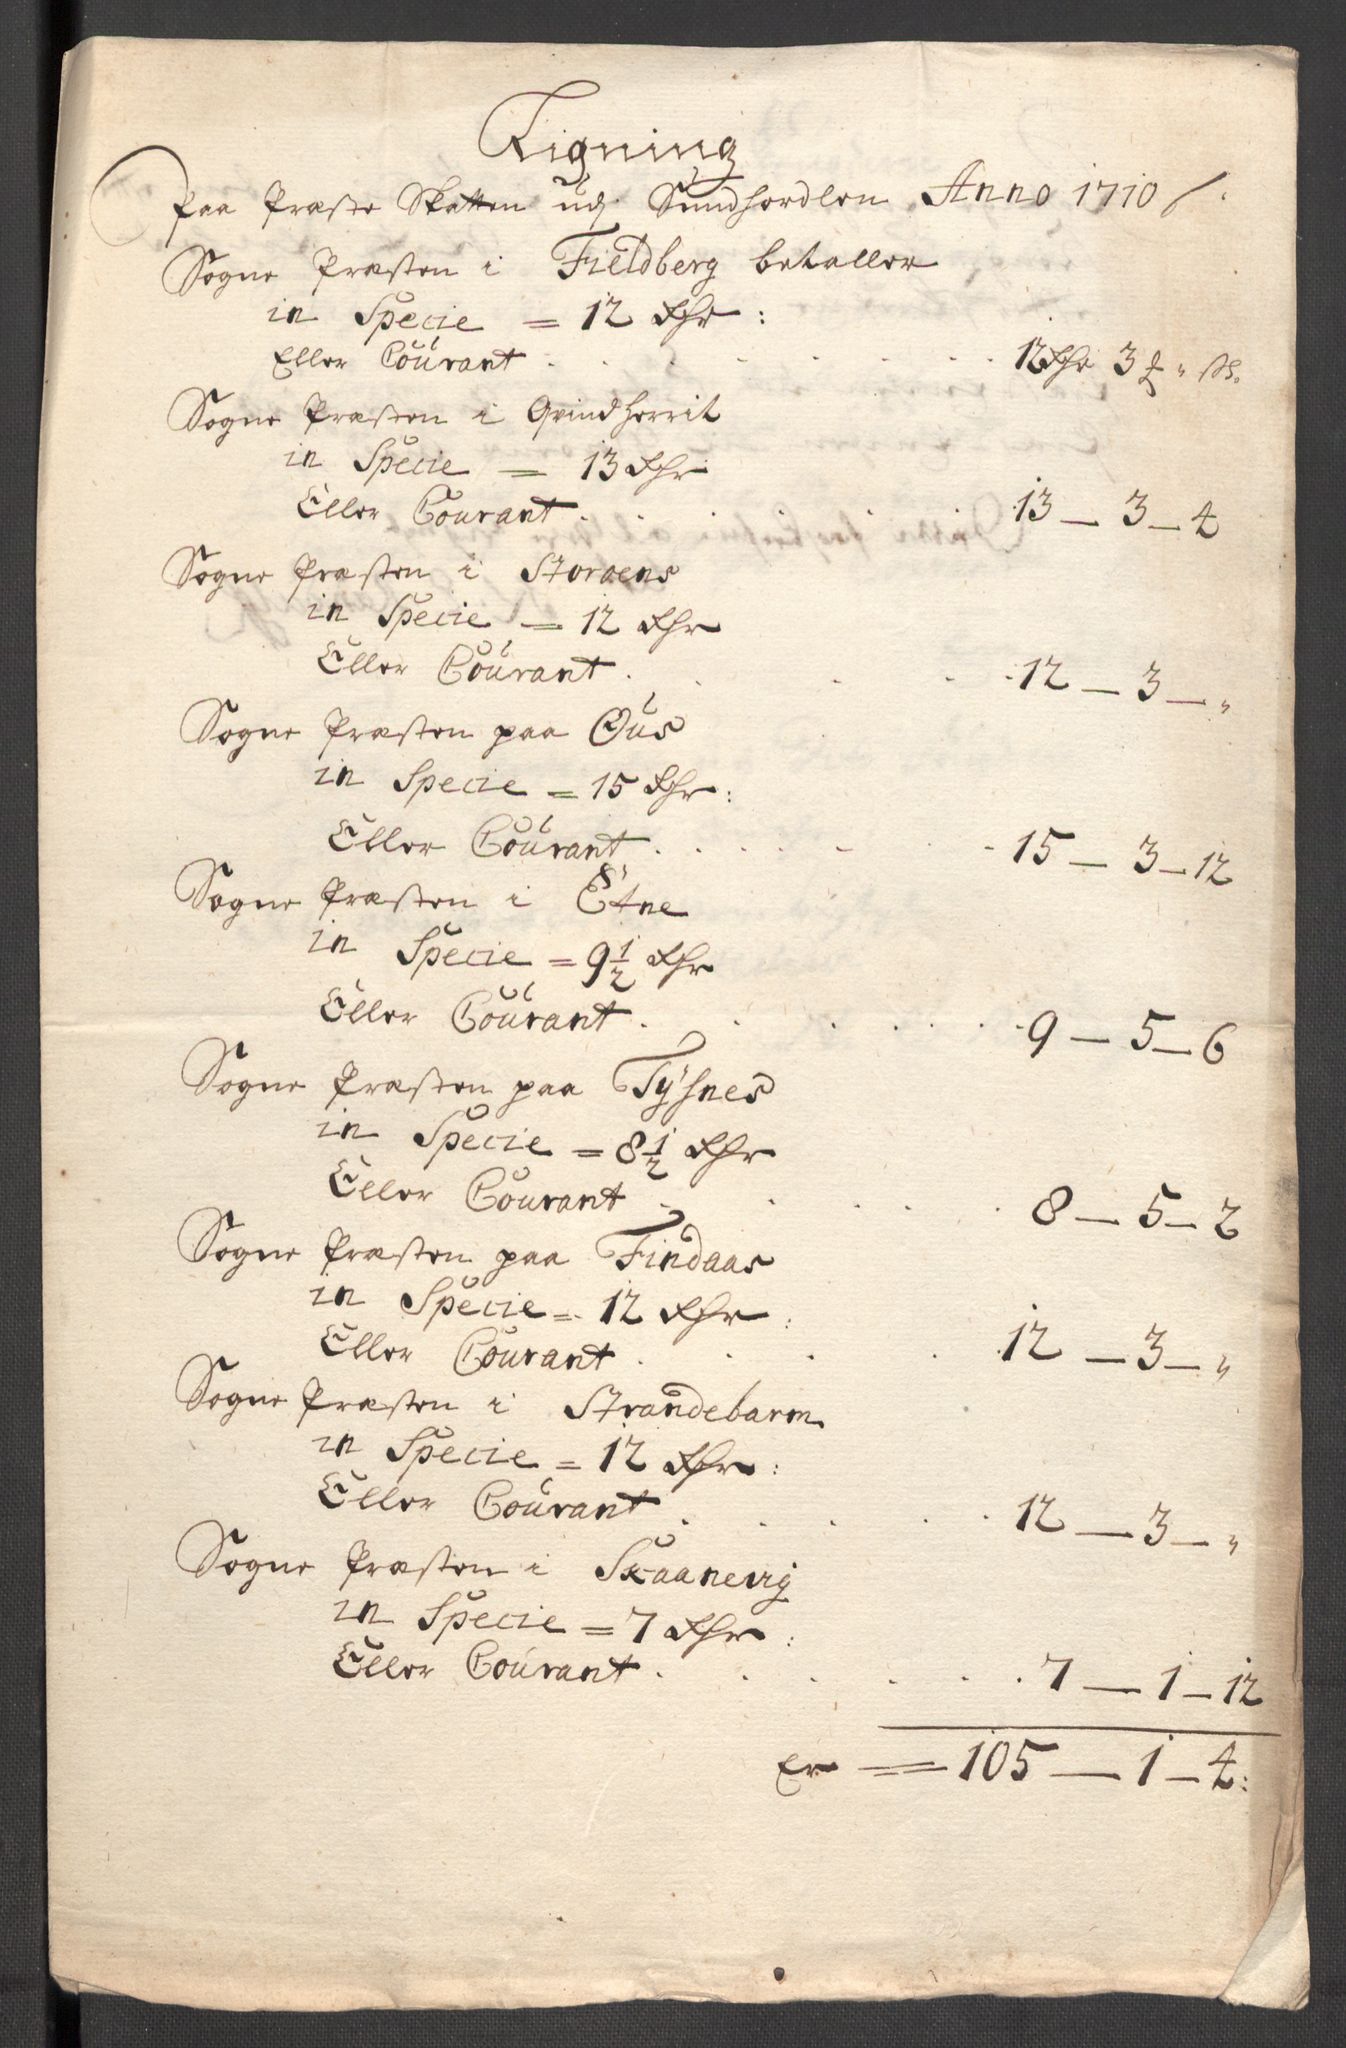 Ligning
Paa Præste Skatten udj Sundhordlen Anno 1710
Sogne Præsten i Fieldberg betaller
in Specie = 12 Rhr:
Eller Courant . . . . . 12 Rhr 3 ₰ " sk.
Sogne Præsten i Qvindherrit
in Specie = 13 Rhr
Eller Courant . . . . 13 — 3 — 4
Sogne Præsten i Storöens
in Specie = 12 Rhr
Eller Courant . . . . 12 — 3 — "
Sogne Præsten paa Ous
in Specie = 15 Rhr:
Eller Courant . . . . . 15 — 3 — 12
Sogne Præsten i Etne
in Specie = 9 1/2 Rhr
Eller Courant . . . . . 9 — 5 — 6
Sogne Præsten paa Tysnes
in Specie = 8 1/2 Rhr
Eller Courant . . . . . 8 — 5 — 2
Sogne Præsten paa Findaas
in Specie = 12 Rhr:
Eller Courant . . . . . 12 — 3 — "
Sogne Præsten i Strandebarm
in Specie = 12 Rhr:
Eller Courant . . . . . 12 — 3 — "
Sogne Præsten i Skaanevig
in Specie = 7 Rhr:
Eller Courant . . . . . 7 — 1 — 12
Er = 105 — 1 — 4: